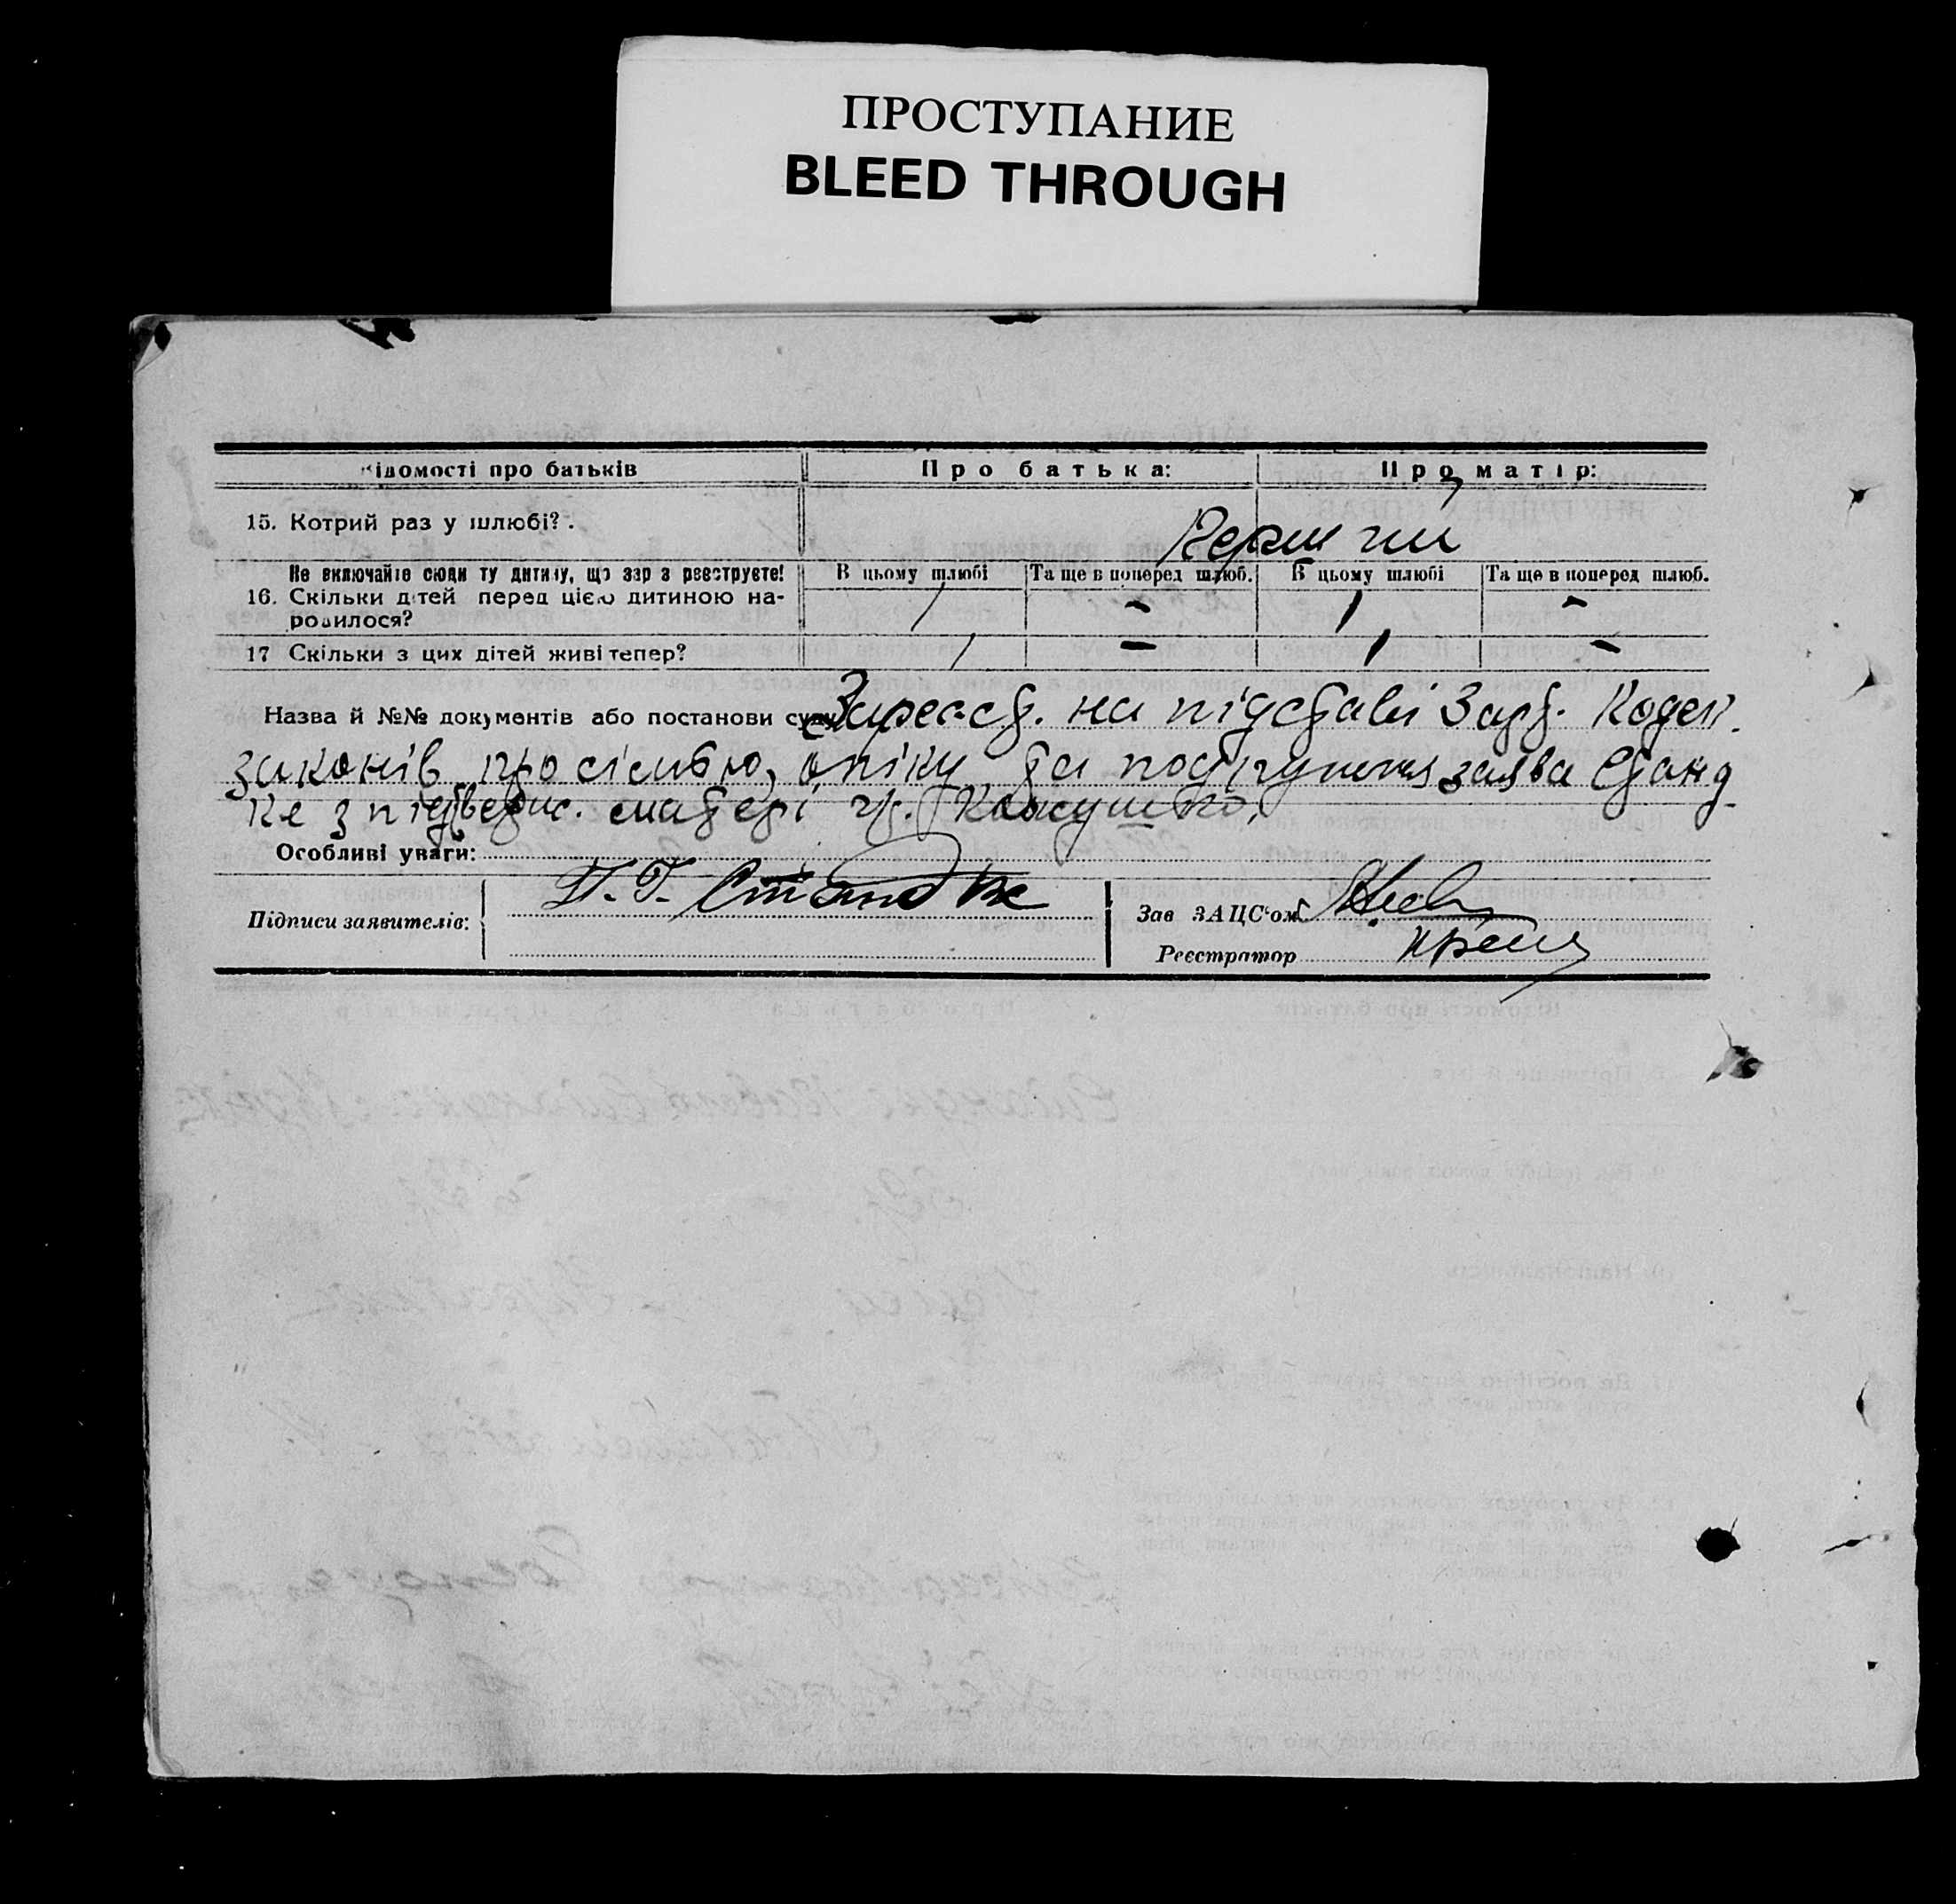 ПРОСТУПАНИЕ
BLEED THROUGH
ідомості про батьків
Про батька:
Про матір:
15. Котрий раз у шлюбі? .
Перший
Не включайте сюди ту дитину, що зараз реєструєте!
В цьому шлюбі
Та ще в поперед шлюб.
В цьому шлюбі
Та ще в поперед шлюб.
16. Скільки дітей перед цією дитиною на-
родилося?
1
-
1
-
17 Скільки з цих дітей живі тепер?
1
-
1
-
Назва й №№ документів або постанови суду Зареєст. на підставі 3 арт. Кодек.
законів про сімью, опіку та подружжя заява Станд
ке з підтверж. матері гр. Кожушко.
Особливі уваги:
Підписи заявителів:
П. Г. Стандке
Зав ЗАЦС'ом
Реєстратор